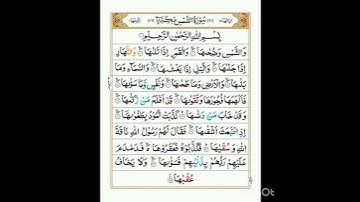 سُوْرَةُ الشَّمْسِ مَكِّيَّةٌ
بِسْمِ اللّٰهِ الرَّحْمٰنِ الرَّحِيْمِ
وَالشَّمْسِ وَضُحٰىهَا ۞ وَالْقَمَرِ اِذَا تَلٰىهَا ۞ وَالنَّهَارِ
اِذَا جَلّٰىهَا ۞ وَالَّيْلِ اِذَا يَغْشٰىهَا ۞ وَالسَّمَآءِ وَمَا
بَنٰىهَا ۞ وَالْاَرْضِ وَمَا طَحٰىهَا ۞ وَنَفْسٍ وَّمَا سَوّٰىهَا ۞
فَاَلْهَمَهَا فُجُوْرَهَا وَتَقْوٰىهَا ۞ قَدْ اَفْلَحَ مَنْ زَكّٰىهَا ۞
وَقَدْ خَابَ مَنْ دَسّٰىهَا ۞ كَذَّبَتْ ثَمُوْدُ بِطَغْوٰىهَا ۞
اِذِ انْۢبَعَثَ اَشْقٰىهَا ۞ فَقَالَ لَهُمْ رَسُوْلُ اللّٰهِ نَاقَةَ
اللّٰهِ وَسُقْيٰهَا ۞ فَكَذَّبُوْهُ فَعَقَرُوْهَا ۞ فَدَمْدَمَ
عَلَيْهِمْ رَبُّهُمْ بِذَنْۢبِهِمْ فَسَوّٰىهَا ۞ وَلَا يَخَافُ
عُقْبٰهَا ۞